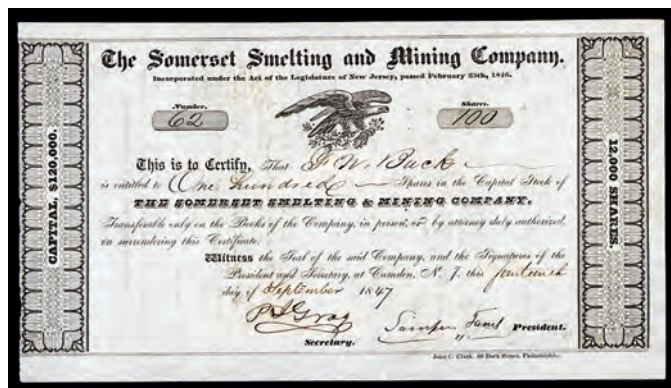 The Somerset Smelting and Mining Company.
Incorporated under the Act of the Legislature of New Jersey, passed February 25th, 1846.
Number. Shares.
62 100
This is to Certify, That F. W. Buck
is entitled to One hundred Shares in the Capital Stock of
THE SOMERSET SMELTING & MINING COMPANY.
Transferable only on the Books of the Company, in person, or by attorney duly authorized,
on surrendering this Certificate.
Witness the Seal of the said Company, and the Signatures of the
President and Secretary, at Camden, N. J. this fourteenth
day of September 1847
Gray
Secretary. President.
CAPITAL, $120,000.
12,000 SHARES.
John C. Clark, 60 Dock Street, Philadelphia.